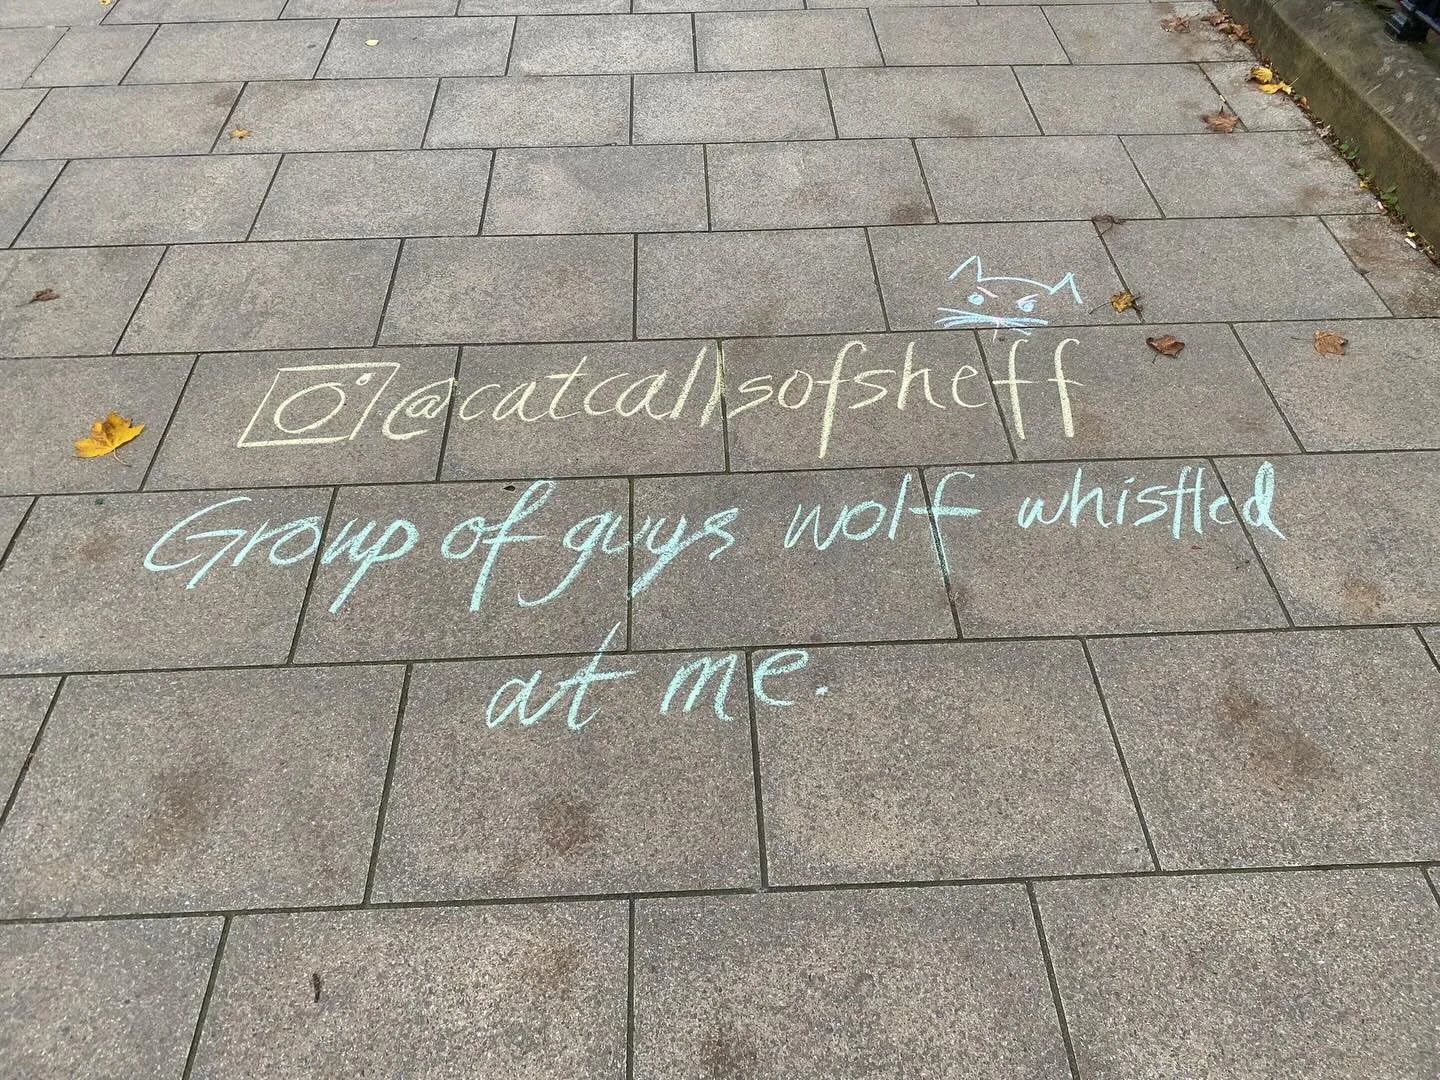 @catcallsofsheff
Group of guys wolf whistled
at me.